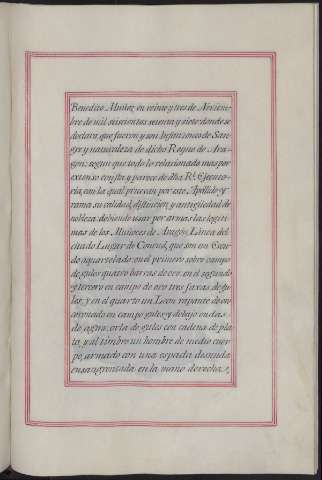 Benedito Muñoz en veinte y tres de Noviem-
bre de mil seiscientos sesenta y siete donde se
declara, que fueron y son Infanzones de San-
gre y naturaleza de dicho Reque de Ara-
gon; segun que todo lo relacionado mas por
extenso consta y parece de dha R.l Executo-
ria, con la qual prueban por este Apellido y
rama su calidad, distincion, y antigüedad de
nobleza debiendo usar por armas las legiti-
mas de los Muñozes de Aragón, Linea del
citado Lugar de que son un Escu-
do aquartelado: en el primero sobre campo
de gules quatro barras de oro: en el segundo
y tercero en campo de oro tres faxas de gu-
les, y en el quarto un Leon rapante de oro
coronado en campo gules, y debajo ondas
de agua: orla de gules con cadena de pla-
ta, y al timbro un hombre de medio cuer-
po, armado con una espada desnuda
ensangrentada en la mano derecha.